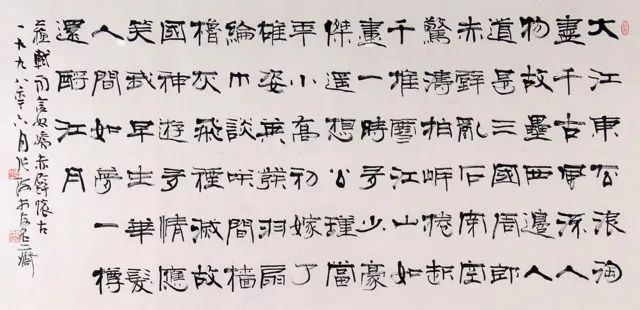 大江東去浪淘
盡千古風流人
物故壘西邊人
道是三國周郎
赤壁亂石穿空
驚濤拍岸捲起
千堆雪江山如
畫一時多少豪
傑遙想公瑾當
年小喬初嫁了
雄姿英發羽扇
綸巾談笑間檣
櫓灰飛煙滅故
國神遊多情應
笑我早生華髮
人間如夢一樽
還酹江月
蘇軾詞念奴嬌赤壁懷古
一九九八年六月張海